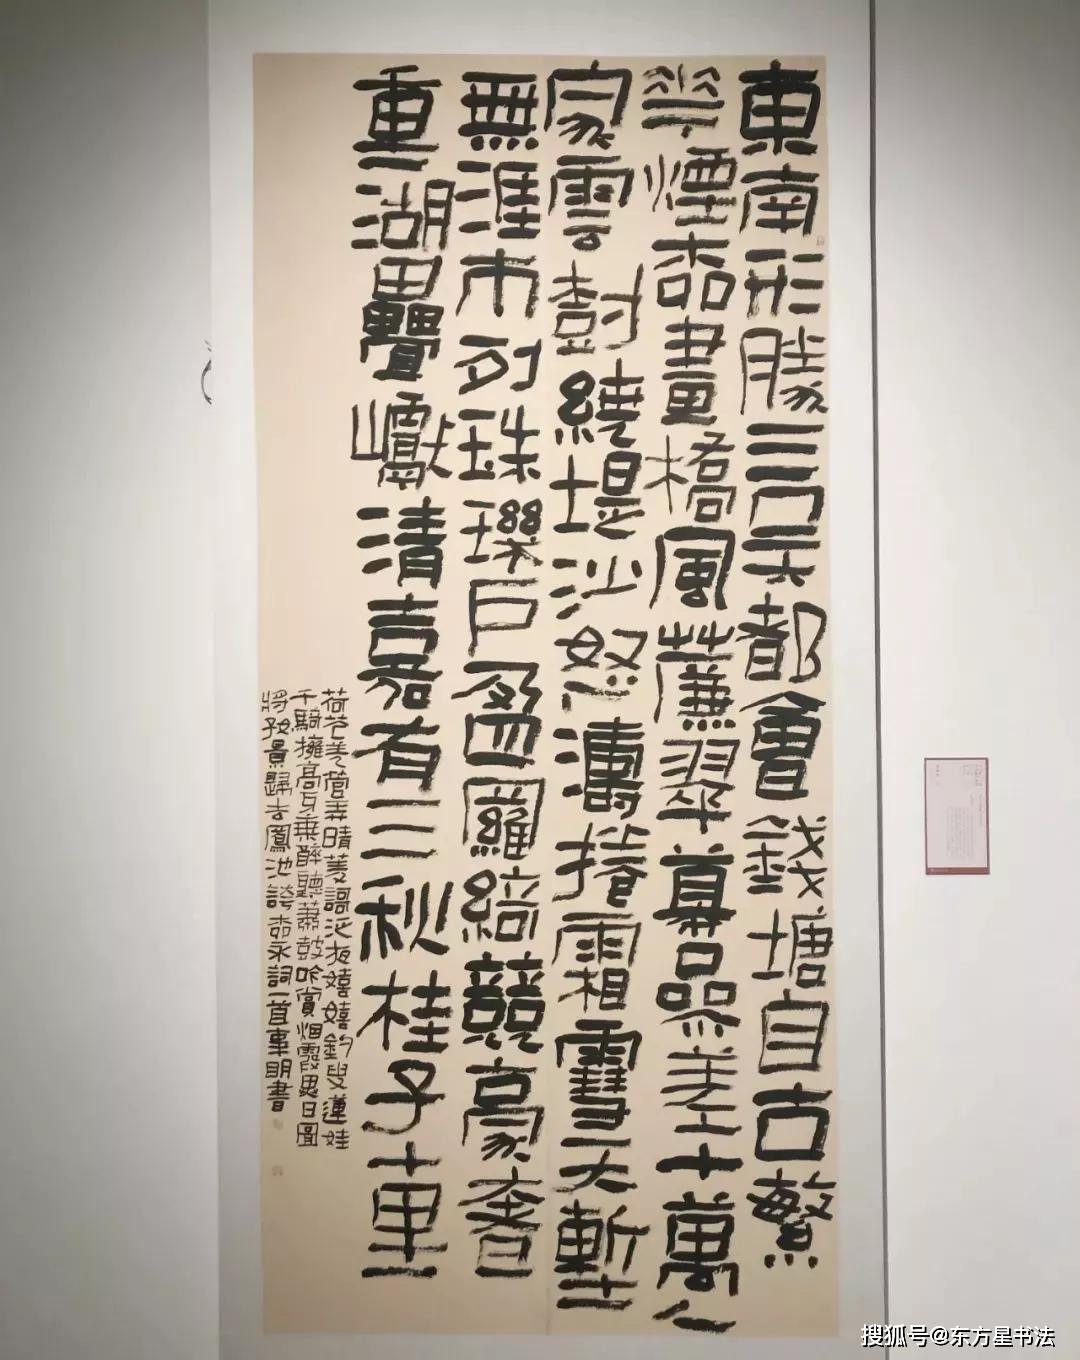 東南形勝三吳都會錢塘自古繁
華煙桺畫橋風薕翠幕參差十萬人
家雲樹繞堤沙怒濤捲霜雪天塹
無涯市列珠璣戶盈羅綺競豪奢
重湖疊巘清嘉有三秋桂子十里
荷花羌管弄晴菱謌泛夜嬉嬉釣叟蓮娃
千騎擁高牙乘醉聽蕭鼓吟賞烟霞異日圖
將好景歸去鳳池誇柳永詞一首明書
搜狐号@东方星书法